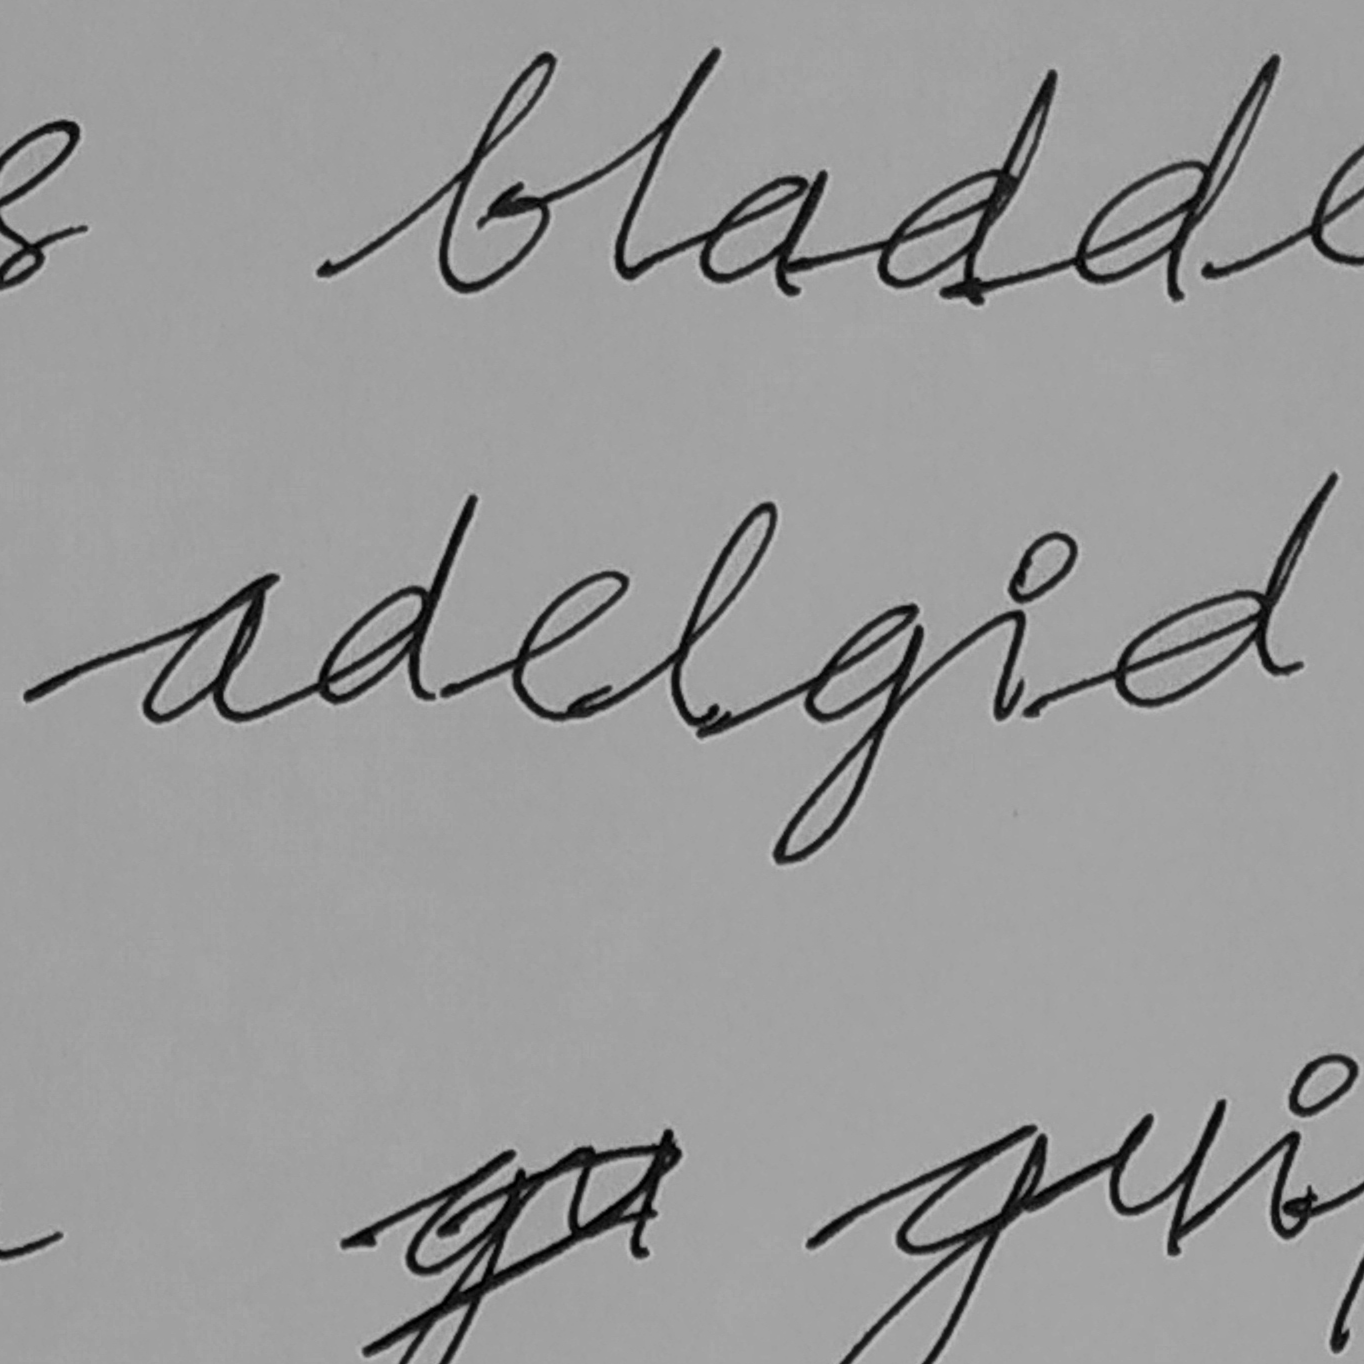 s bladde
adelgid
gui